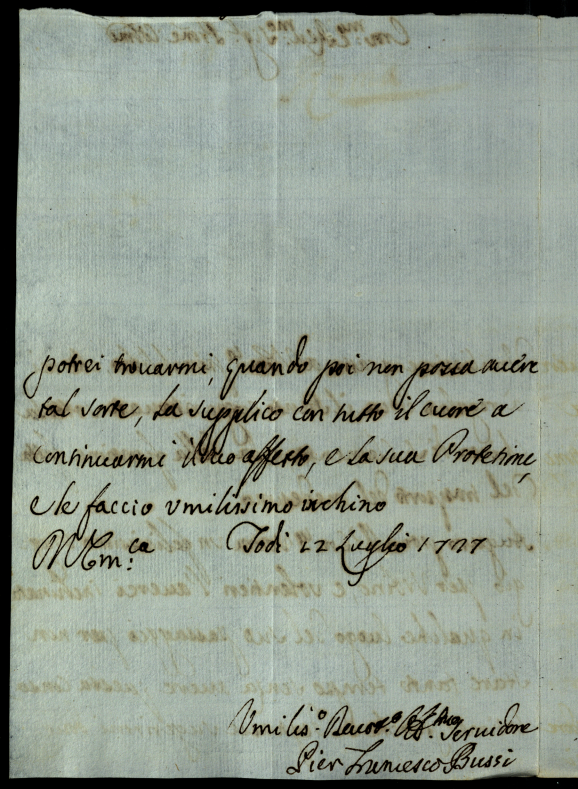 potrei trouarmi, quando poi non possa auere
tal sorte, La supplico con tutto il cuore a
continuarmi il suo affetto, e La sua Protetione,
e le faccio vmilissimo inchino
Todi 12 Luglio 1727
Vmilis.º Deuot.º Seruidore
Pier Francesco Bussi